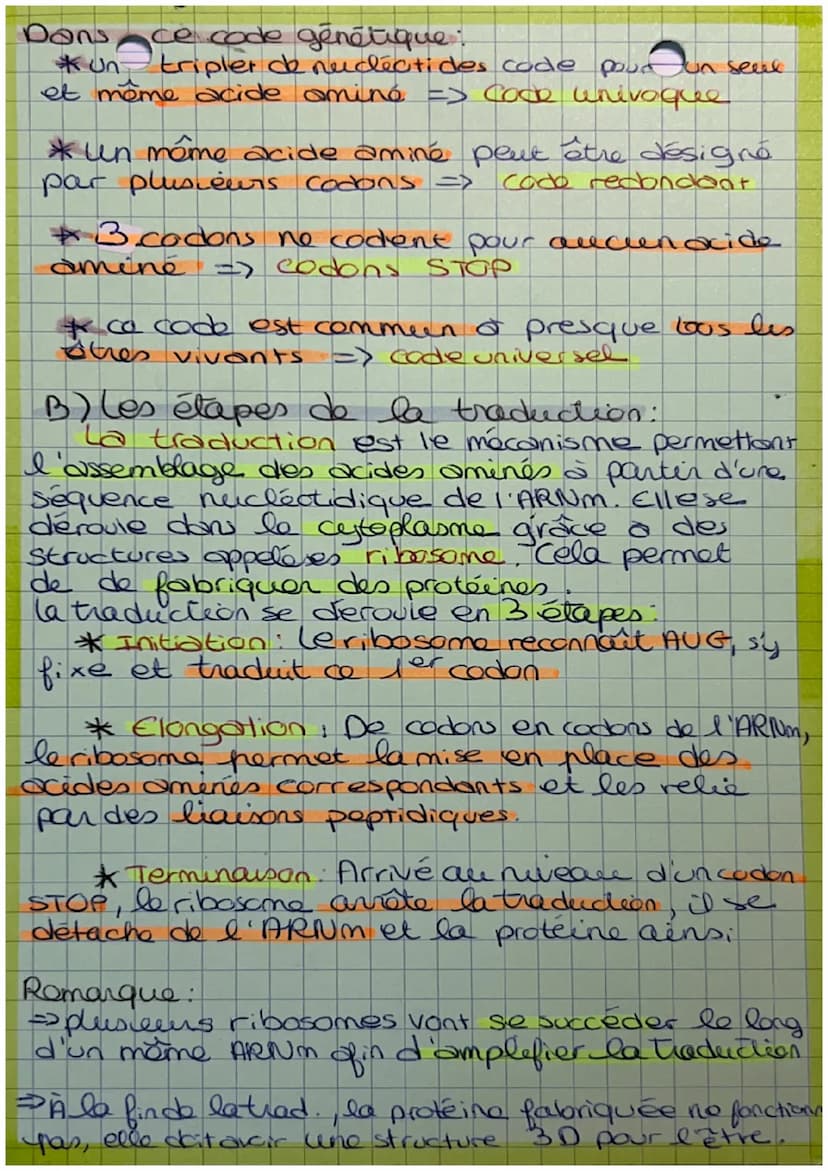 Dans ce code génétique :
* un triplet de nucléotides code pour un seul
et même acide aminé => Code univoque
* Un même acide aminé peut être désigné
par plusieurs codons => code redondant
* 3 codons ne codent pour aucun acide
aminé => codons STOP
* ce code est commun à presque tous les
êtres vivants => code universel
B) Les étapes de la traduction :
La traduction est le mécanisme permettant
l'assemblage des acides aminés à partir d'une
séquence nucléotidique de l'ARNm. Elle se
déroule dans le cytoplasme grâce à des
structures appelées ribosome. Cela permet
de de fabriquer des protéines.
la traduction se déroule en 3 étapes :
* Initiation : Le ribosome reconnaît AUG, s'y
fixe et traduit ce 1er codon
* Elongation : De codons en codons de l'ARNm,
le ribosome permet la mise en place des
acides aminés correspondants et les relie
par des liaisons peptidiques.
* Terminaison : Arrivé au niveau d'un codon
STOP, le ribosome arrête la traduction, il se
détache de l'ARNm et la protéine ainsi
Remarque :
=> plusieurs ribosomes vont se succéder le long
d'un même ARNm afin d'amplefier la traduction
=> À la fin de la trad., la protéine fabriquée ne fonction
pas, elle doit avoir une structure 3D pour l'être.